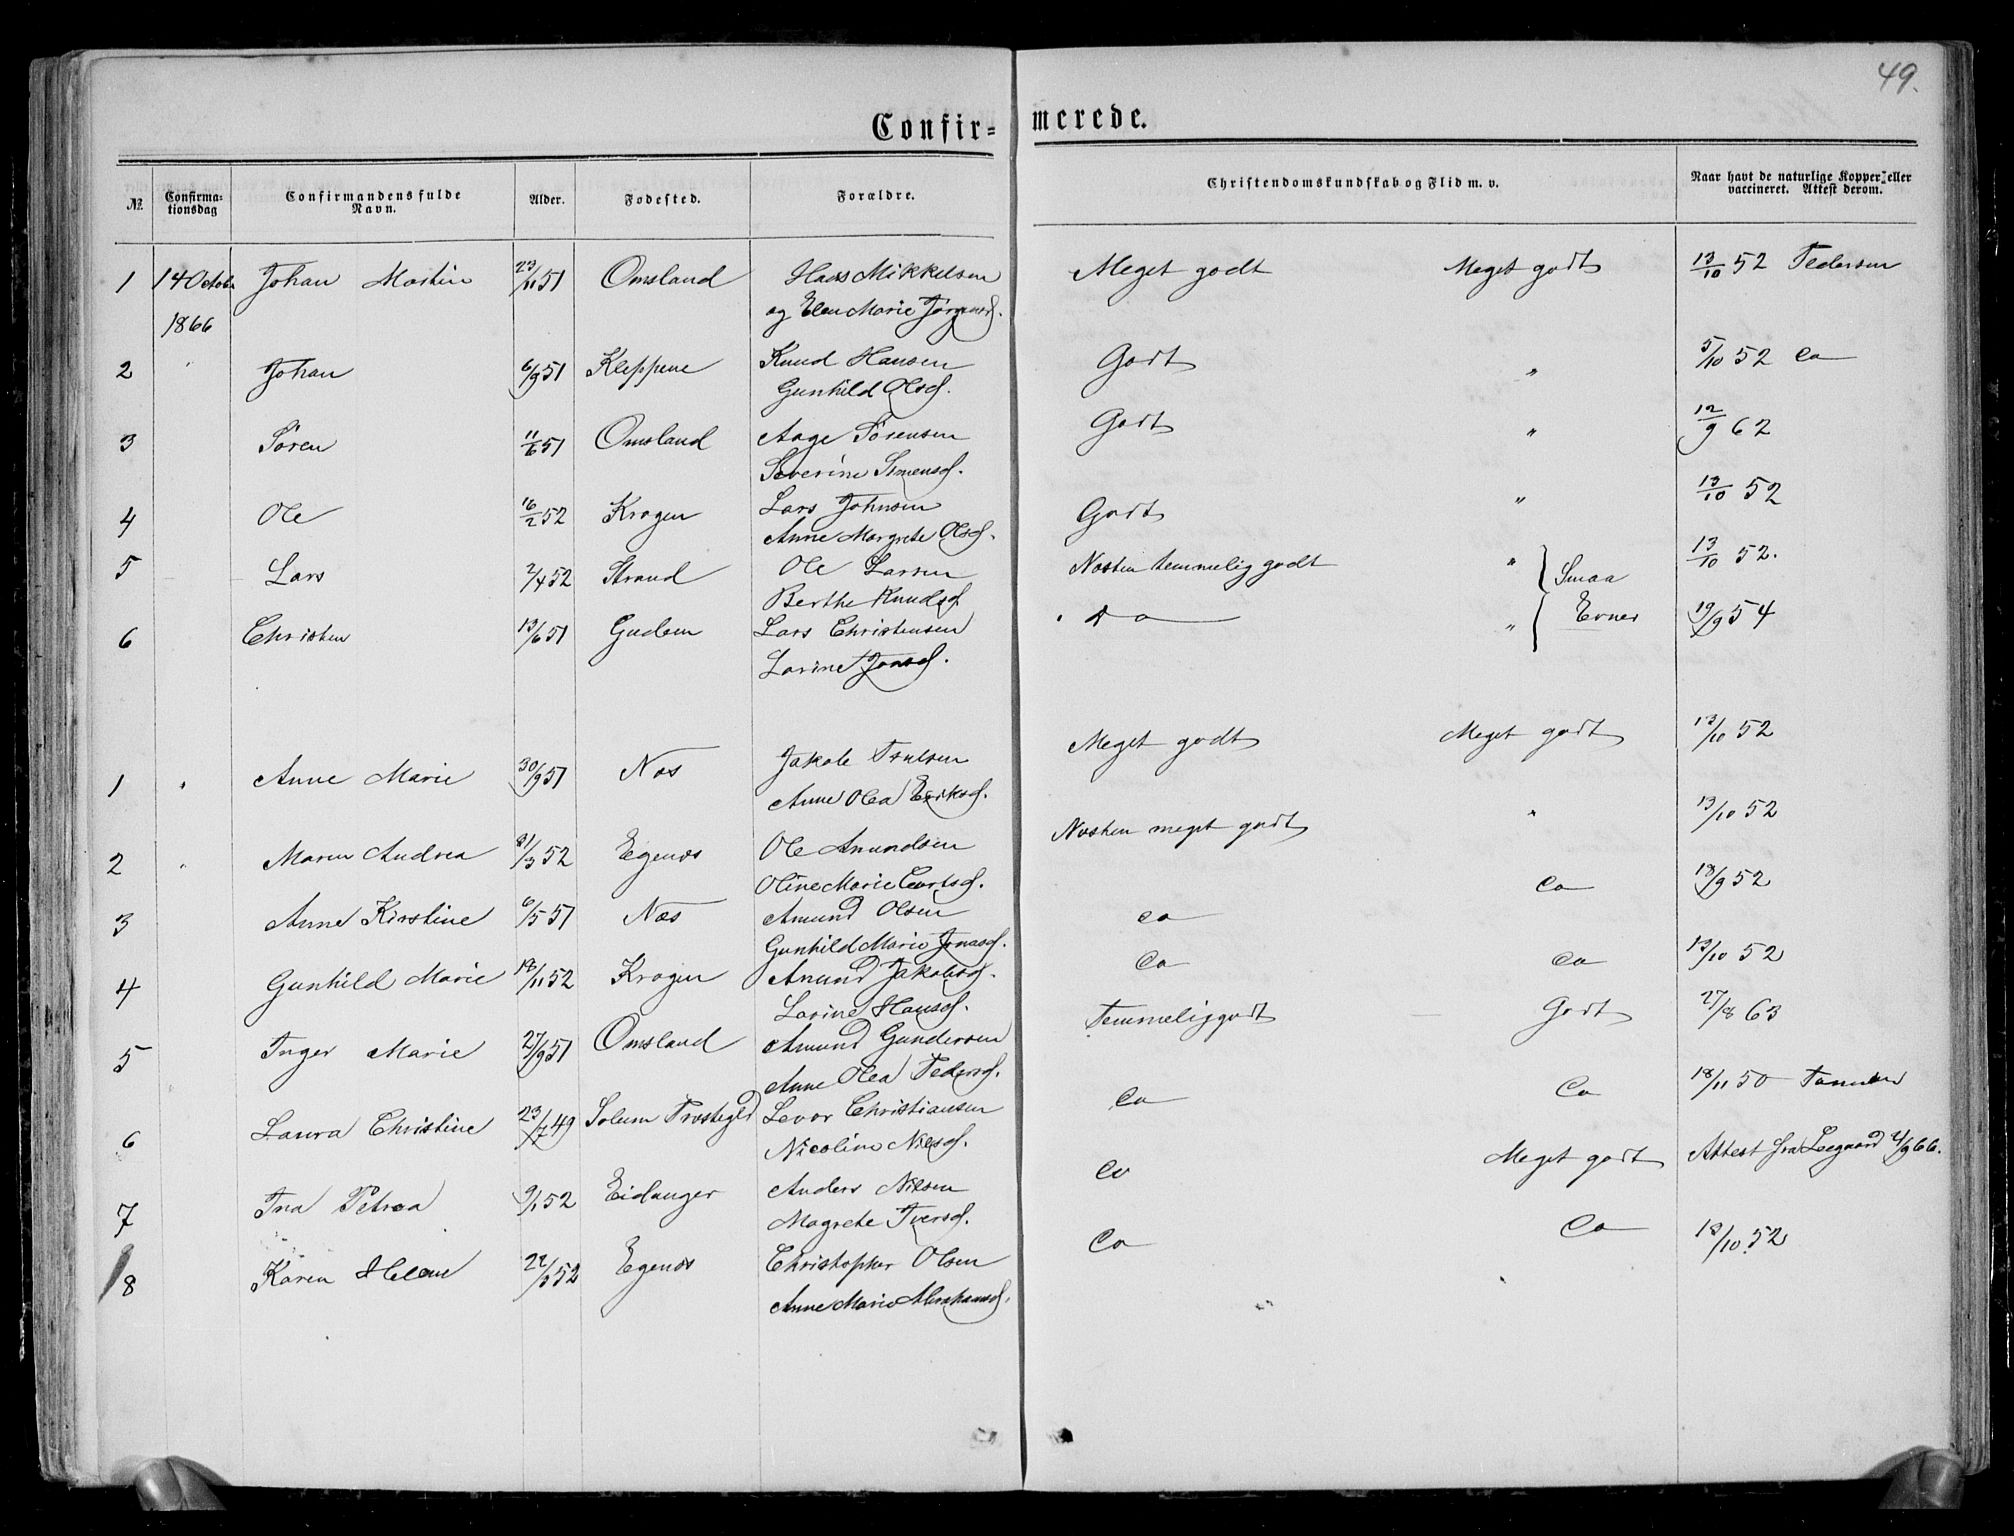 49.
Confir- merede.
№ Confirma-tionsdag Confirmandens fulde Navn. Alder. Fødested. Forældre. Christendomskundskab og Flid m. v. Naar havt de naturlige Kopper eller vaccineret. Attest derom.
1 14 Octobr Johan Martin 23/11 51 Omsland Hans Mikkelsen Meget godt Meget godt 13/10 52 Pedersen
1866 og Elen Marie Jørgensd.
2 " Johan 6/9 51 Kleppene Knud Hansen Godt " 5/10 52 Do
Gunhild Olsd.
3 Søren 11/6 51 Omsland Aage Sørensen Godt " 12/9 62
Severine Simensd.
4 Ole 16/2 52 Krogen Lars Johnsen Godt " 13/10 52
Anne Margrete Olsd.
5 Lars 2/4 52 Strand Ole Larsen Næsten temmelig godt " Smaa 13/10 52.
Berthe Knudsd.
6 Christen 13/6 51 Gusen Lars Christensen do " Evner 19/9 54
Larine Jonsd.
1 " Anne Marie 30/9 51 Næs Jakob Meget godt Meget godt 13/10 52
Anne Olea Eriksd.
2 " Maren Andrea 31/3 52 Egenæs Ole Amundsen Næsten meget godt " 13/10 52
Oline Marie
3 Anne Kirstine 6/5 51 Næs Amund Olsen Do Do 13/9 52
Gunhild Marie Jonasd.
4 Gunhild Marie 18/11 52 Krogen Amund Jakobsd. Do Do 13/10 52
Larine Hansd.
5 Inger Marie 27/9 51 Omsland Amund Gundersen Temmelig godt Godt 27/8 63
Anne Olea Pedersd.
6 Laura Christine 23/7 49 Solum Præstegjeld Levor Christiansen Do Do 18/11 50
Nicoline Nilsd.
7 Ina Petrea 9/1 52 Eidanger Anders Nilsen Do Meget godt Attest fra Leegaard 4/9 66.
Magrete Iversd.
8 Karen Helene 22/3 52 Egenæs Christopher Olsen Do Do 13/10 52
Anne Marie Abrahamsd.